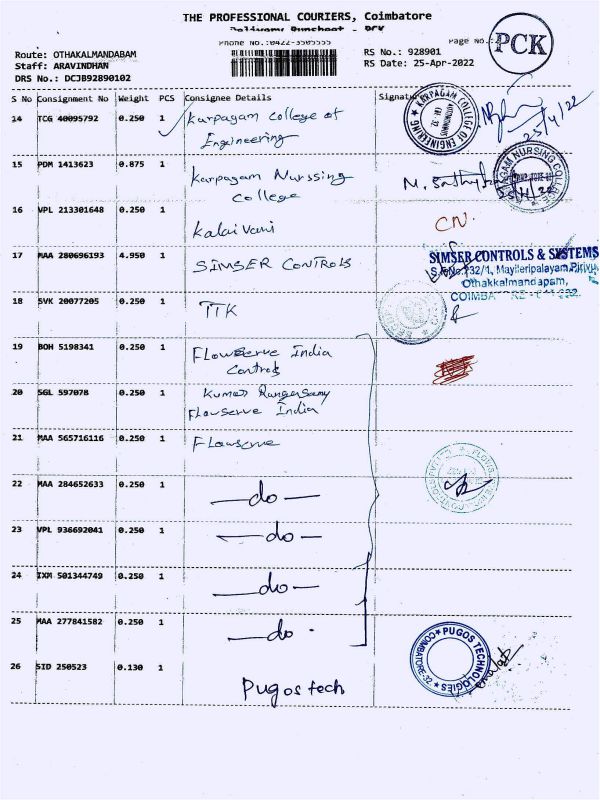 THE PROFESSIONAL COURIERS, Coimbatore
Delivery Runsheet - PCK
Phone No.:0422-3505555
Page No.:
PCK
Route: OTHAKALMANDABAM
Staff: ARAVINDHAN
DRS No.: DCJB92890102
RS No.: 928901
RS Date: 25-Apr-2022
S No Consignment No Weight PCS Consignee Details Signature
14 TCG 40095792 0.250 1 Karpagam College of
Engineering
KARPAGAM COLLEGE OF ENGINEERING
AUTONOMOUS
25/4/22
15 PDM 1413623 0.875 1 Karpagam Nurssing
College
M. Sathiya
NURSING COLLEGE
16 VPL 213301648 0.250 1 Kalaivani
CN.
17 MAA 280696193 4.950 1 SIMSER CONTROLS
SIMSER CONTROLS & SYSTEMS
S.F.No.732/1, Mayileripalayam Pirivu,
Othakkalmandapam,
18 SVK 20077205 0.250 1 TTK
19 BOH 5198341 0.250 1 Flowserve India
Controls
20 SGL 597078 0.250 1 Kumar Rangasamy
Flowserve India
21 MAA 565716116 0.250 1 Flowserve
22 MAA 284652633 0.250 1 —do—
23 VPL 936692041 0.250 1 —do—
24 IXM 501344749 0.250 1 —do—
25 MAA 277841582 0.250 1 —do-
26 SID 250523 0.130 1 Pugos tech
PUGOS TECHNOLOGIES
COIMBATORE-32